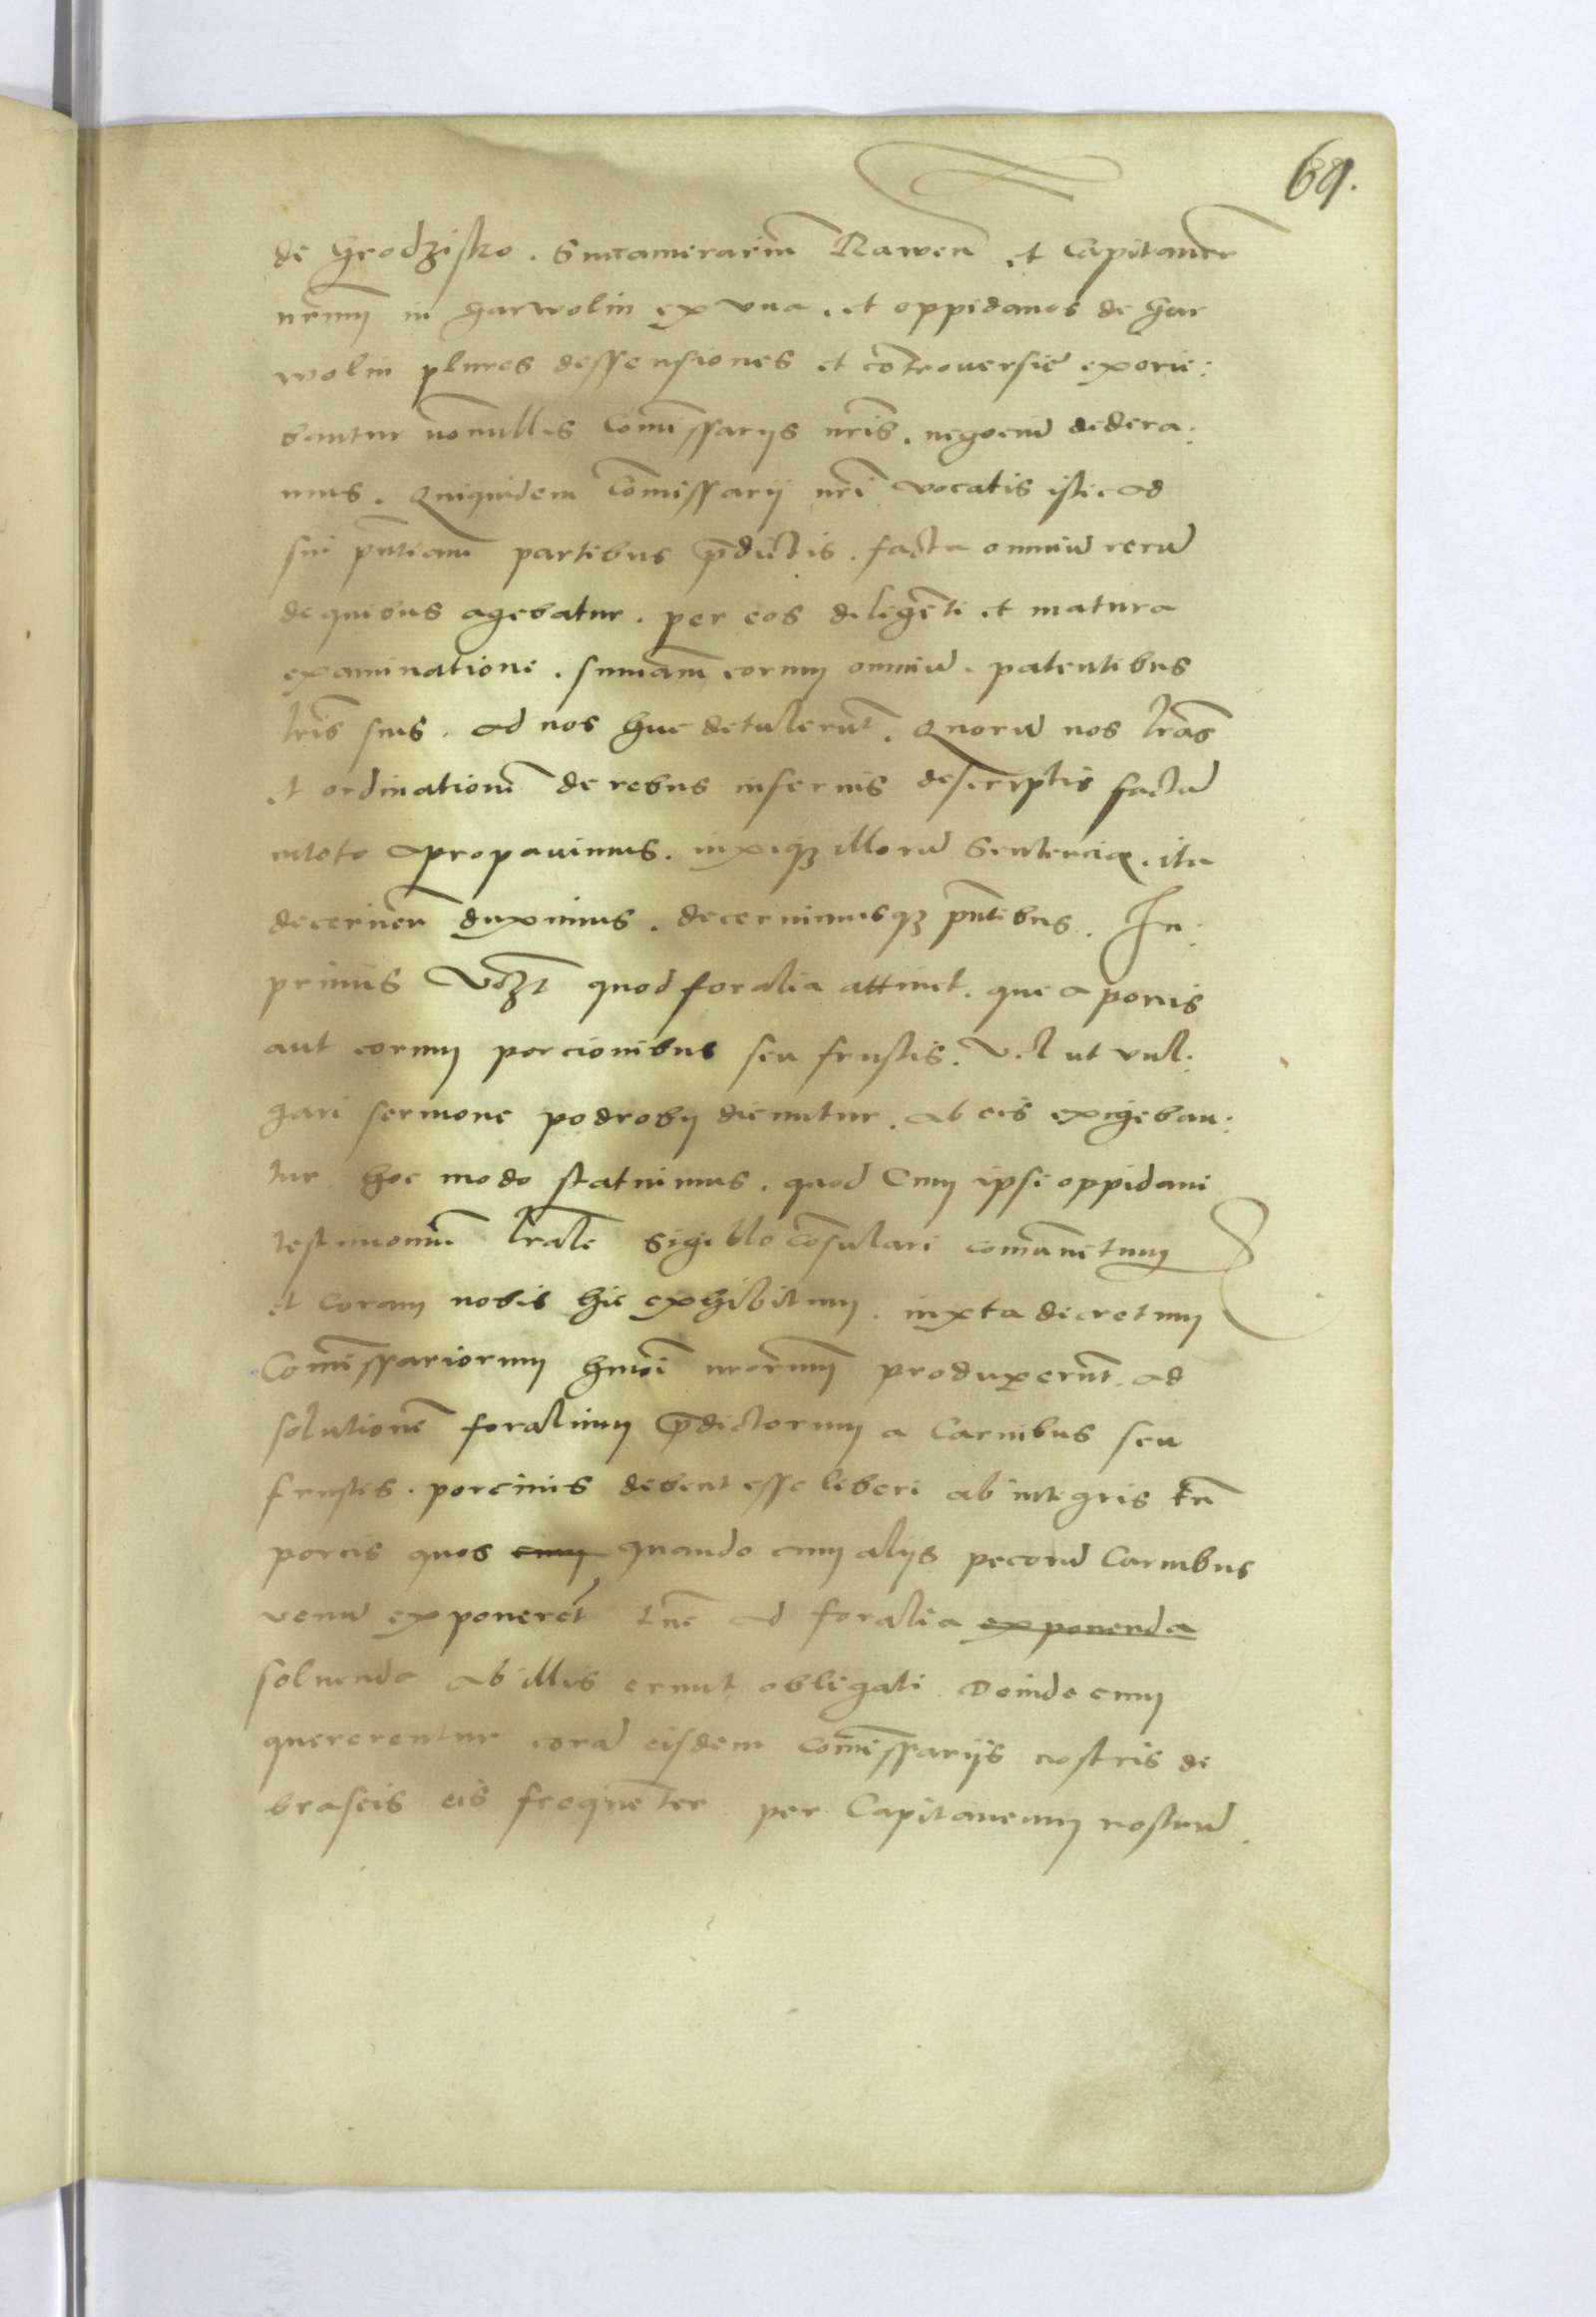 69.
de Grodzisko. Succamerariũ Rawen̄ et Capitaneũ
nr̄um in garwolin ex vna. et oppidanos de Gar
wolin plures dessensiones et cōtrouersie exorie:
bantur nōnullis Com̄issarys nr̄is. negociũ dedera:
mus. Quiquidem Com̄issarij nr̄i vocatis istic ad
sui pn̄tiam partibus p̄dictis. facta omniũ rerũ
de quibus agebatur. per eos deligēti et matura
examinatione. sum̄am eorum omniũ. patentibus
lr̄is suis. ad nos huc detulerũt. Quorũ nos lr̄as
et ordinationē de rebus inferius descriptis factã
in toto apropauimus. inxiqz illorũ Sentencia. ita
decernen̄ duximus. decernimusqz pn̄tibus. In:
primis quod foralia attinet. que a porcis
aut eorum porcionibus seu frustis. vel ut vul:
gari sermone podroby dicuntur. ab eis exigeban:
tur hoc modo statuimus. quod Cum ipsi oppidani
testimoniũ lr̄ale sigillo cōsulari comũnitum
et coram nobis hic exhibitum. iuxta decretum
Com̄issariorum hmōi nr̄orum produxerũt. ad
solutionē foralium p̄dictorum a Carnibus seu
frustis. porcinis debent esse liberi ab integris tn̄
porcis quos cum quando cum alijs pecorũ Carnibus
venũ exponerēt tũc ad foralia exponenda
soluenda ab illis erunt obligati. Deinde cum
quererentur corã eisdem Com̄issarijs nostris de
braseis eis frequēter per Capitaneum nostrũ.